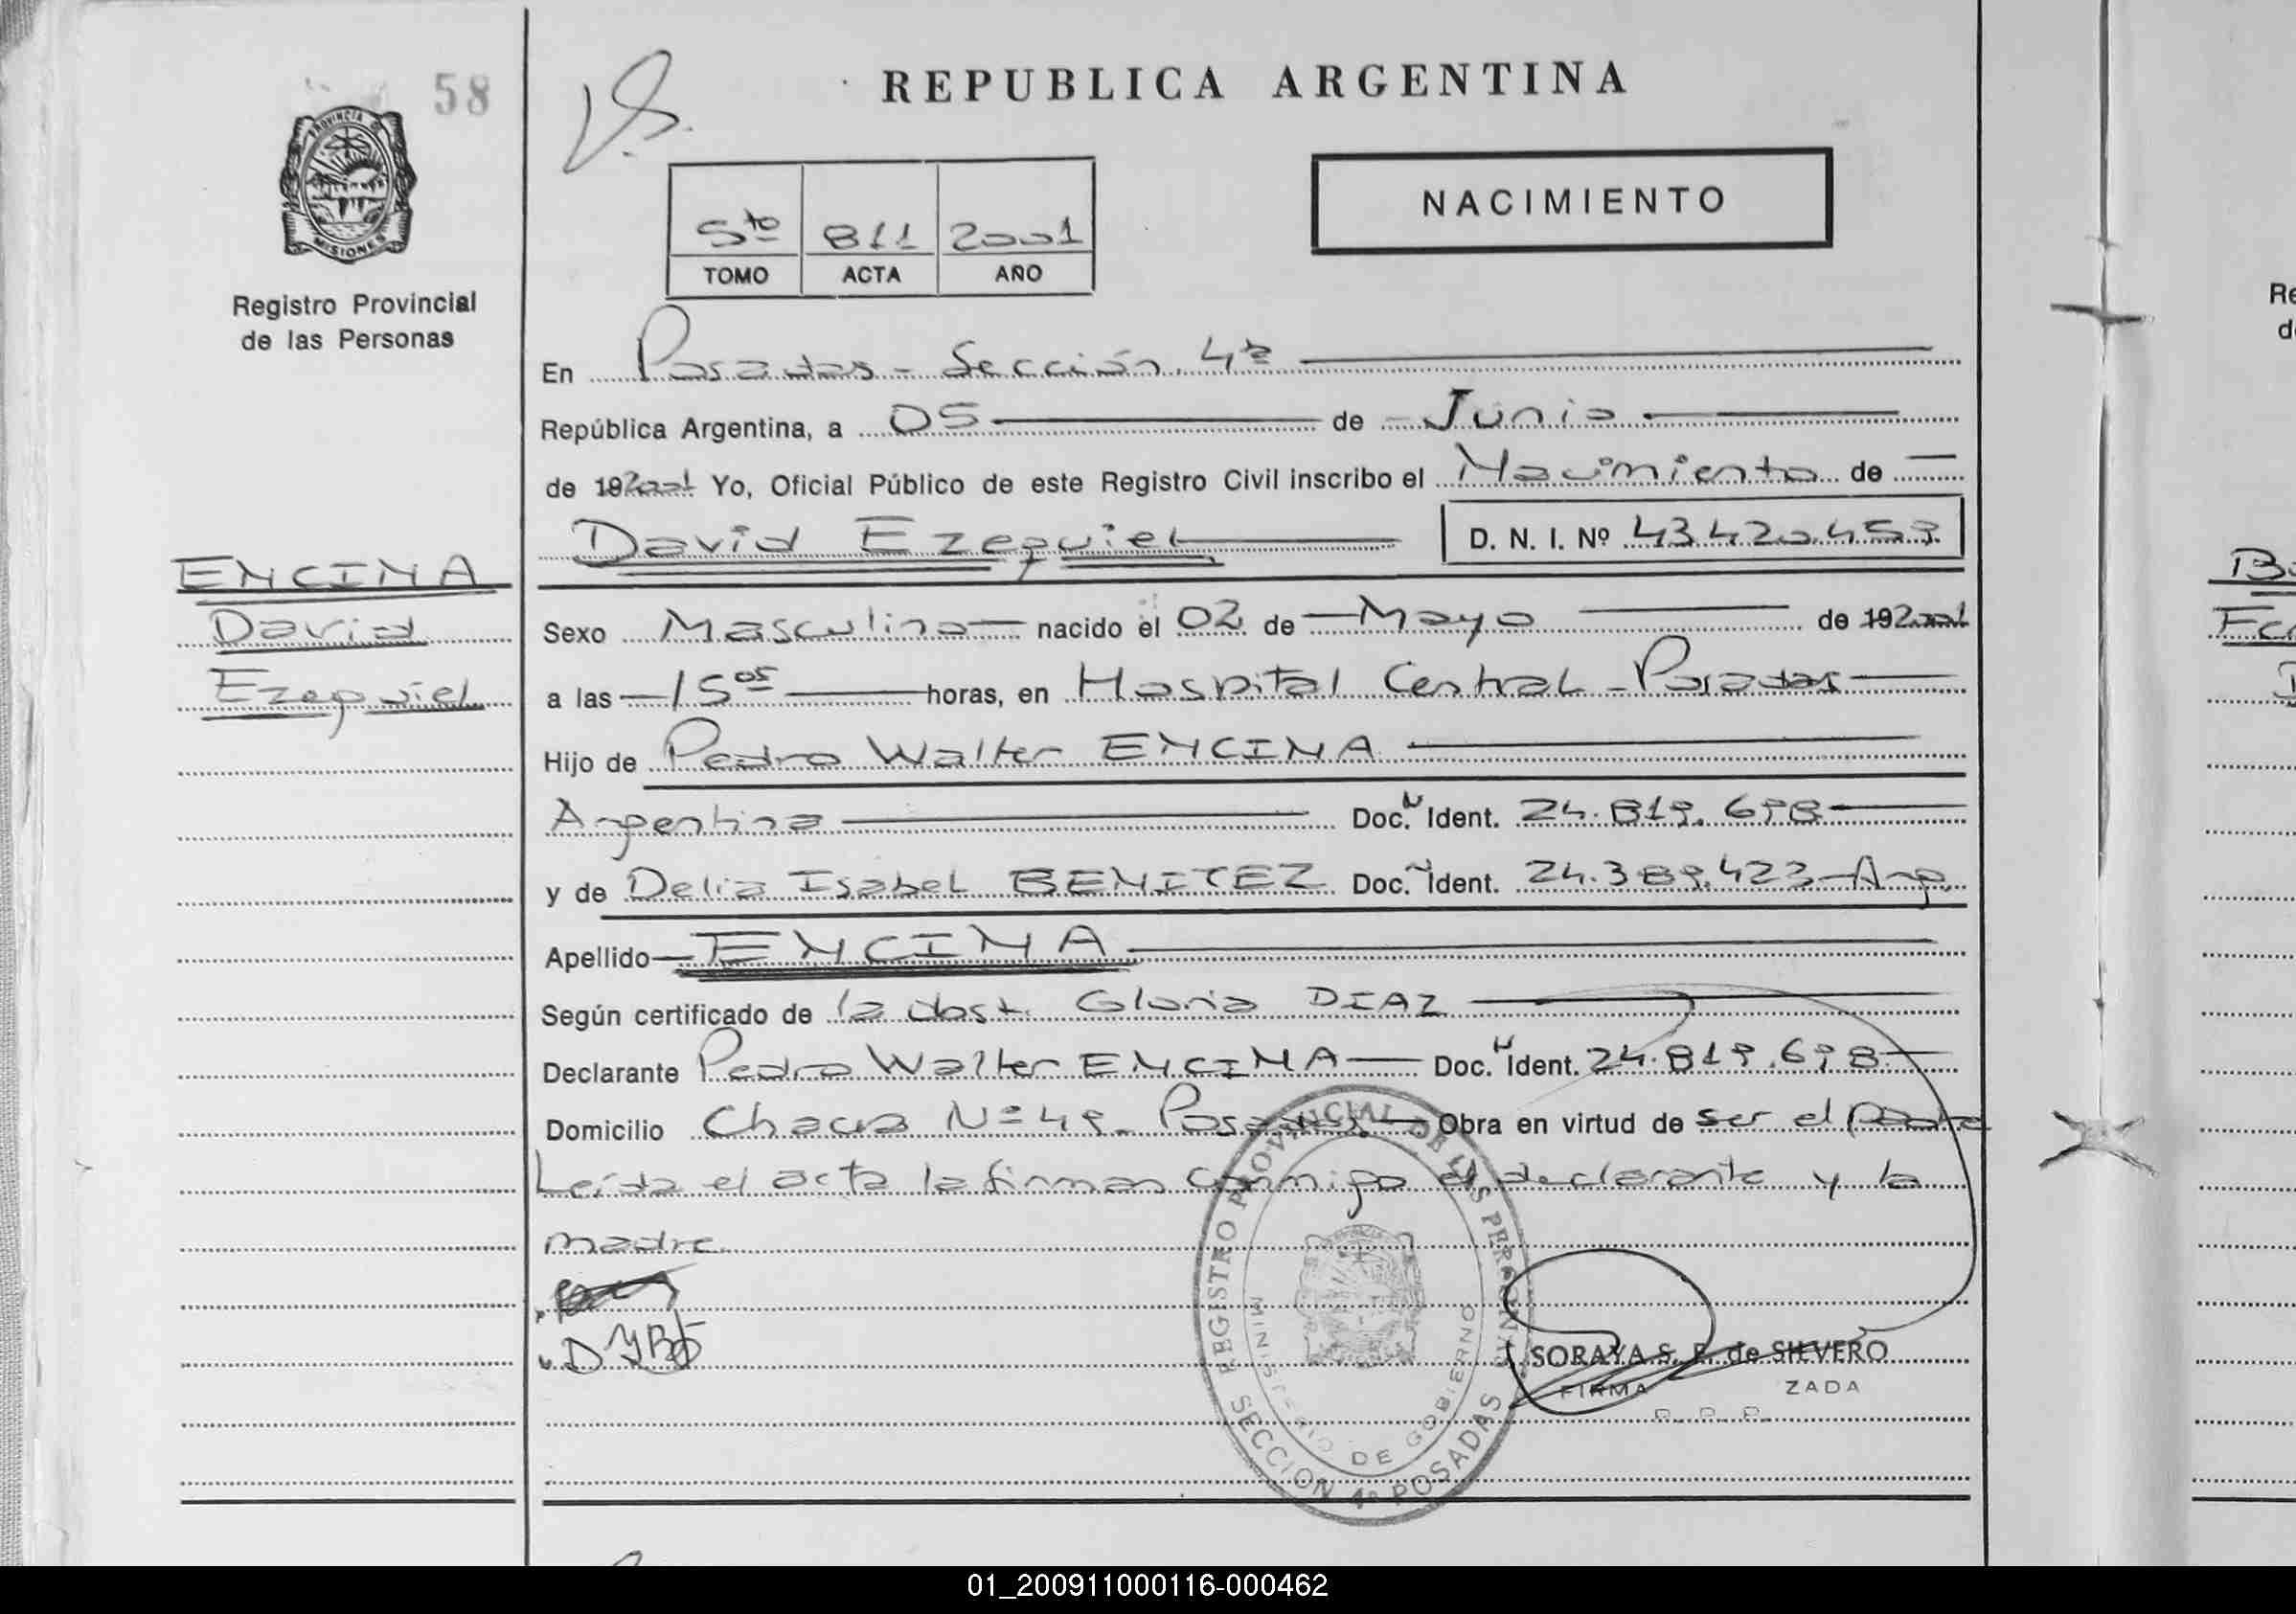 58
PROVINCIA DE
MISIONES
Registro Provincial
de las Personas
REPUBLICA ARGENTINA
NACIMIENTO
5to 811 2001
TOMO ACTA AÑO
En Posadas - Sección 4ª
República Argentina, a 05 de Junio
de 192001 Yo, Oficial Público de este Registro Civil inscribo el Nacimiento de
David Ezequiel D. N. I. Nº 43.420.459
ENCINA
David
Ezequiel
Sexo Masculino nacido el 02 de Mayo de 192001
a las 15 05 horas, en Hospital Central - Posadas
Hijo de Pedro Walter ENCINA
Argentina Doc. N Ident. 24.819.698
y de Delia Isabel BENITEZ Doc. N Ident. 24.389.423 - Arg.
Apellido ENCINA
Según certificado de la obst. Gloria DIAZ
Declarante Pedro Walter ENCINA Doc. N Ident. 24.819.698
Domicilio Chacra Nº 49 - Posadas - Obra en virtud de ser el padre
Leída el acta la firman conmigo el declarante y la
madre
REGISTRO PROVINCIAL DE LAS PERSONAS
MINISTERIO DE GOBIERNO
SECCION 4ª POSADAS
SORAYA S. F. de SILVERO
FIRMA ZADA
Re
d
Fc
01_200911000116-000462